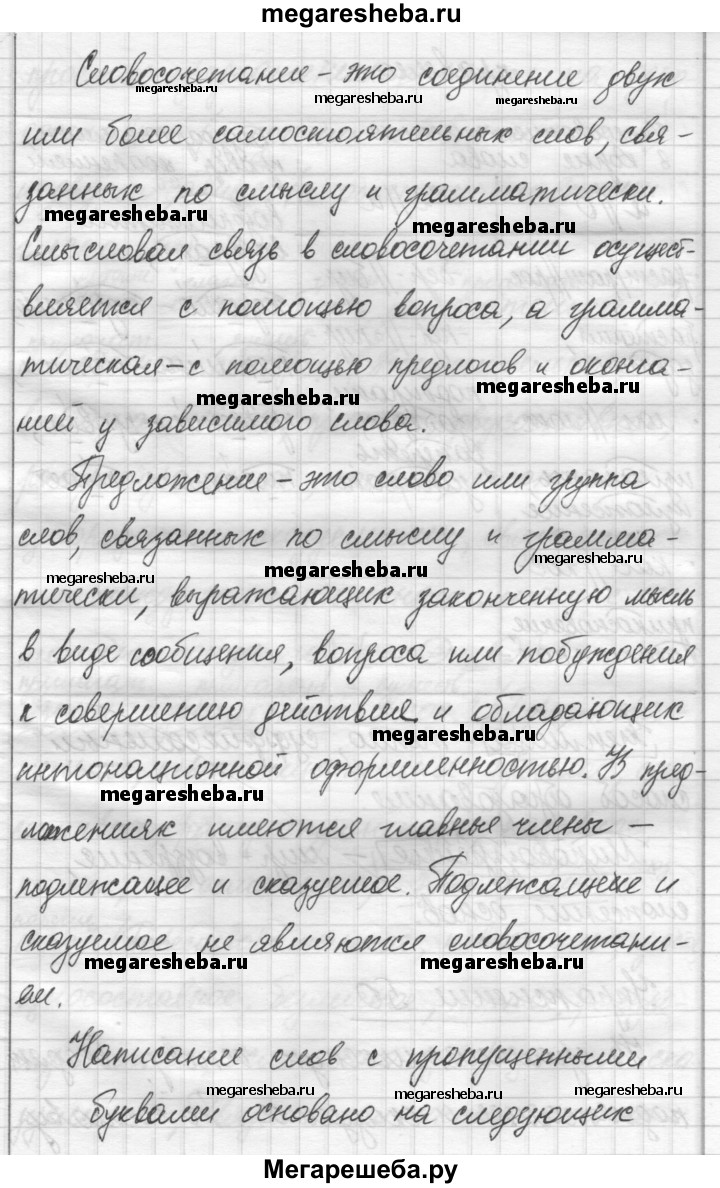 megaresheba.ru
Словосочетание – это соединение двух
megaresheba.ru megaresheba.ru megaresheba.ru
или более самостоятельных слов, свя-
занных по смыслу и грамматически.
megaresheba.ru megaresheba.ru
Смысловая связь в словосочетании осущест-
вляется с помощью вопроса, а грамма-
тическая – с помощью предлогов и оконча-
megaresheba.ru megaresheba.ru
ний у зависимого слова.
Предложение – это слово или группа
слов, связанных по смыслу и грамма-
megaresheba.ru megaresheba.ru megaresheba.ru
тически, выражающих законченную мысль
в виде сообщения, вопроса или побуждения
к совершению действия и обладающих
megaresheba.ru
интонационной оформленностью. В пред-
megaresheba.ru
ложениях имеются главные члены –
подлежащее и сказуемое. Подлежащее и
сказуемое не являются словосочетани-
megaresheba.ru megaresheba.ru
ем.
Написание слов с пропущенными
megaresheba.ru megaresheba.ru megaresheba.ru
буквами основано на следующих
Мегарешеба.ру